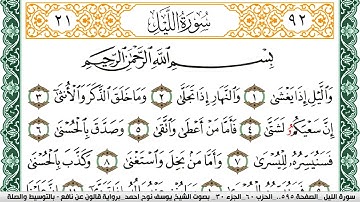 ٩٢ سُورَةُ اللَّيْلِ ٢١
بِسْمِ اللَّهِ الرَّحْمَٰنِ الرَّحِيمِ
وَالَّيْلِ إِذَا يَغْشَىٰ ١ وَالنَّهَارِ إِذَا تَجَلَّىٰ ٢ وَمَا خَلَقَ الذَّكَرَ وَالْأُنثَىٰ ٣
إِنَّ سَعْيَكُمُۥ لَشَتَّىٰ ٤ فَأَمَّا مَنْ أَعْطَىٰ وَاتَّقَىٰ ٥ وَصَدَّقَ بِالْحُسْنَىٰ ٦
فَسَنُيَسِّرُهُۥ لِلْيُسْرَىٰ ٧ وَأَمَّا مَنۢ بَخِلَ وَاسْتَغْنَىٰ ٨ وَكَذَّبَ بِالْحُسْنَىٰ
سورة الليل . الصفحة ٥٩٥ . الحزب ٦٠ . الجزء ٣٠ . بصوت الشيخ يوسف نوح احمد . برواية قالون عن نافع - بالتوسيط والصلة